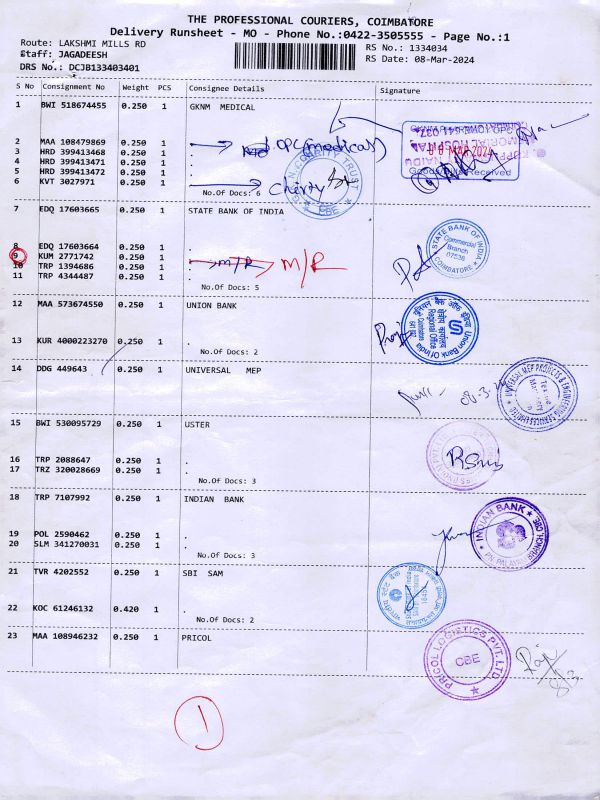 THE PROFESSIONAL COURIERS, COIMBATORE
Delivery Runsheet - MO - Phone No.:0422-3505555 - Page No.:1
Route: LAKSHMI MILLS RD
RS No.: 1334034
Staff: JAGADEESH
RS Date: 08-Mar-2024
DRS No.: DCJB133403401
S No Consignment No Weight PCS Consignee Details Signature
1 BWI 518674455 0.250 1 GKNM MEDICAL
2 MAA 108479869 0.250 1 .
3 HRD 399413468 0.250 1 .
4 HRD 399413471 0.250 1 .
5 HRD 399413472 0.250 1 .
6 KVT 3027971 0.250 1 .
No.Of Docs: 6
OPC (medical)
08 MAR 2024
Received
CBE
7 EDQ 17603665 0.250 1 STATE BANK OF INDIA
8 EDQ 17603664 0.250 1 .
9 KUM 2771742 0.250 1 .
10 TRP 1394686 0.250 1 .
11 TRP 4344487 0.250 1 .
No.Of Docs: 5
M/R M/R
STATE BANK OF INDIA
Commercial
Branch
07536
COIMBATORE
12 MAA 573674550 0.250 1 UNION BANK
13 KUR 4000223270 0.250 1 .
No.Of Docs: 2
Union Bank Of India
Regional Office
14 DDG 449643 0.250 1 UNIVERSAL MEP
15 BWI 530095729 0.250 1 USTER
16 TRP 2088647 0.250 1 .
17 TRZ 320028669 0.250 1 .
No.Of Docs: 3
18 TRP 7107992 0.250 1 INDIAN BANK
19 POL 2590462 0.250 1 .
20 SLM 341270031 0.250 1 .
No.Of Docs: 3
INDIAN BANK
21 TVR 4202552 0.250 1 SBI SAM
22 KOC 61246132 0.420 1 .
No.Of Docs: 2
23 MAA 108946232 0.250 1 PRICOL
PRICOL LOGISTICS PVT. LTD
CBE
1